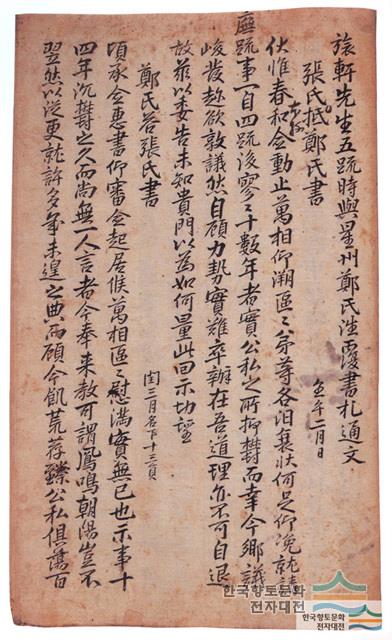 旅軒先生五疏時與星州鄭氏往覆書札通文
張氏抵鄭氏書 年二月日
伏惟春和令動止萬相仰溯區〻弟等各汨衰狀何足仰浼就請
廡疏事一自四疏後寥〻十數年者實公私之所抑欝而幸今鄕議
峻發趂欲敦議然自顧力勢實難卒辦在吾道理亦不可自退
故玆以委告未知貴門以爲如何量此回示切望
鄭氏答張氏書 閏三月 十三員
頃承令惠書仰審令起居候萬相區〻慰滿實無已也示事十
四年沉欝之久而尙無一人言者今奉來教可謂鳳鳴朝陽豈不
翌然以從更就許多年未遑之典而顧今飢荒荐臻公私俱蕩百
한국향토문화
전자대전
한국향토문화
전자대전